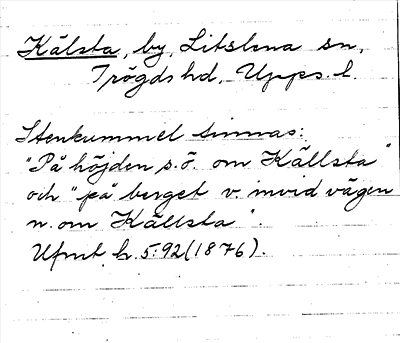 Kälsta, by, Litslena sn,
Trögds hd, Upps. l.
Stenkummel finnas:
"På höjden s.ö. om Källsta"
och "på berget v. invid vägen
n. om Källsta".
Ufmt h. 5:92 (1876).